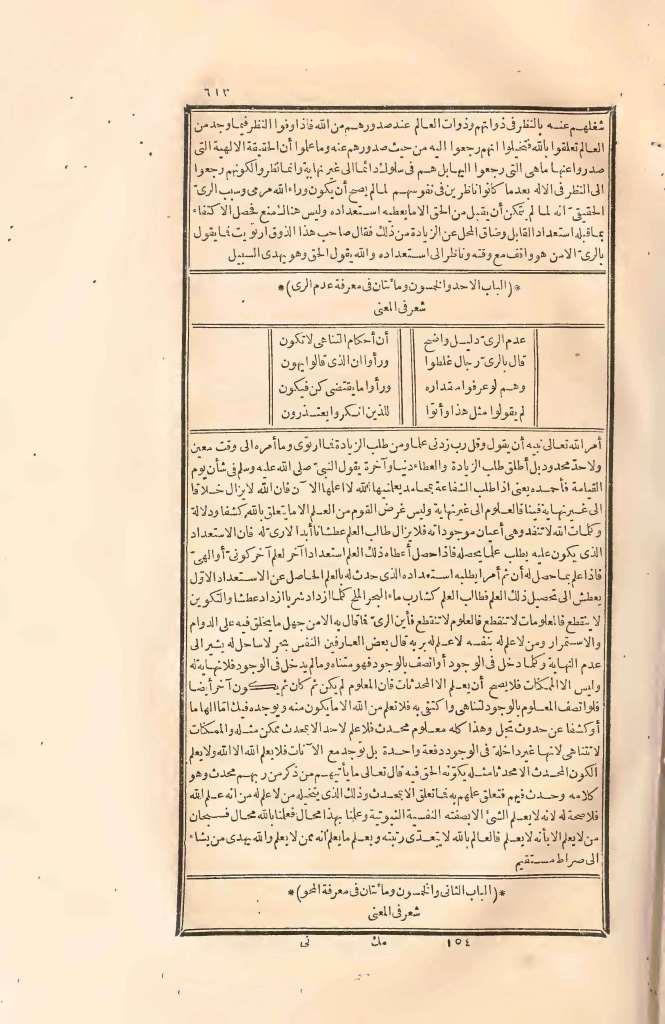 ٦١٣
شغلهم عنه بالنظر فى ذواتهم وذوات العالم عند صدورهم من الله فاذا وفوا النظر فيما وجد من
العالم تعلقوا بالله فتخيلوا انهم رجعوا اليه من حيث صدورهم عنه وما علموا أن الحقيقة الالهية التى
صدروا عنها ما هى التى رجعوا اليها بل هم فى سلوك دائما الى غير نهاية وانما نظروا لكونهم رجعوا
الى النظر فى الاله بعدما كانوا ناظرين فى نفوسهم لما لم يصح أن يكون وراء الله مرمى وسبب الرىّ
الحقيقىّ انه لما لم يتمكن أن يقبل من الحق الا ما يعطيه استعداده وليس هناك منع فحصل الاكتفاء
بما قبله استعداد القابل وضاق المحل عن الزيادة من ذلك فقال صاحب هذا الذوق ارتويت فما يقول
بالرىّ الا من هو واقف مع وقته وناظر الى استعداده والله يقول الحق وهو يهدى السبيل
* (الباب الاحد والخمسون ومائتان فى معرفة عدم الرى) *
شعر فى المعنى
عدم الرىّ دليل واضح أن أحكام التناهى لا تكون
قال بالرىّ رجال غلطوا ورأوا ان الذى قالوا يهون
وهم لو عرفوا مقداره ورأوا ما يقتضى كن فيكون
لم يقولوا مثل هذا وأتوا للذين انكروا يعتذرون
أمر الله تعالى نبيه أن يقول وقل رب زدنى علما ومن طلب الزيادة فما ارتوى وما أمره الى وقت معين
ولا حدّ محدود بل أطلق طلب الزيادة والعطاء دنيا وآخرة يقول النبىّ صلى الله عليه وسلم فى شأن يوم
القيامة فأحمده يعنى اذا طلب الشفاعة بمحامد يعلمنيها الله لا اعلمها الآن فان الله لا يزال خلاقا
الى غير نهاية فينا فالعلوم الى غير نهاية وليس غرض القوم من العلم الا ما يتعلق بالله كشفا ودلالة
وكلمات الله لا تنفد وهى أعيان موجوداته فلا يزال طالب العلم عطشانا أبدا لا رى له فان الاستعداد
الذى يكون عليه يطلب علما يحصله فاذا حصل أعطاه ذلك العلم استعدادا آخر لعلم آخر كونىّ أو الهىّ
فاذا علم بما حصل له أن ثم أمرا يطلبه استعداده الذى حدث له بالعلم الحاصل عن الاستعداد الاوّل
يعطش الى تحصيل ذلك العلم فطالب العلم كشارب ماء البحر الملح كلما ازداد شربا ازداد عطشا والتكوين
لا ينقطع فالمعلومات لا تنقطع فالعلوم لا تنقطع فأين الرىّ فما قال به الا من جهل ما يخلق فيه على الدوام
والاستمرار ومن لا علم له بنفسه لا علم له بربه قال بعض العارفين النفس بحر لا ساحل له يشير الى
عدم النهاية وكلما دخل فى الوجود أو اتصف بالوجود فهو متناه وما لم يدخل فى الوجود فلا نهاية له
وليس الا الممكنات فلا يصح أن يعلم الا المحدثات فان المعلوم لم يكن ثم كان ثم يكون آخر أيضا
فلو اتصف المعلوم بالوجود لتناهى واكتفى به فلا تعلم من الله الا ما يكون منه ويوجده فيك اما الهاما
أو كشفا عن حدوث تجل وهذا كله معلوم محدث فلا علم لاحد الا بمحدث ممكن مثله والممكنات
لا تتناهى لانها غير داخلة فى الوجود دفعة واحدة بل توجد مع الآنات فلا يعلم الله الا الله ولا يعلم
الكون المحدث الا محدثا مثله يكوّنه الحق فيه قال تعالى ما يأتيهم من ذكر من ربهم محدث وهو
كلامه وحدث فيهم فتعلق علمهم به فما تعلق الا بمحدث وذلك الذى يتخيله من لا علم له من انه علم الله
فلا صحة له لانه لا يعلم الشئ الا بصفته النفسية الثبوتية وعلمنا بهذا محال فعلمنا بالله محال فسبحان
من لا يعلم الا بأنه لا يعلم فالعالم بالله لا يتعدّى رتبته ويعلم ما يعلم أنه ممن لا يعلم والله يهدى من يشاء
الى صراط مستقيم
* (الباب الثانى والخمسون ومائتان فى معرفة المحو) *
شعر فى المعنى
١٥٤ مك نى